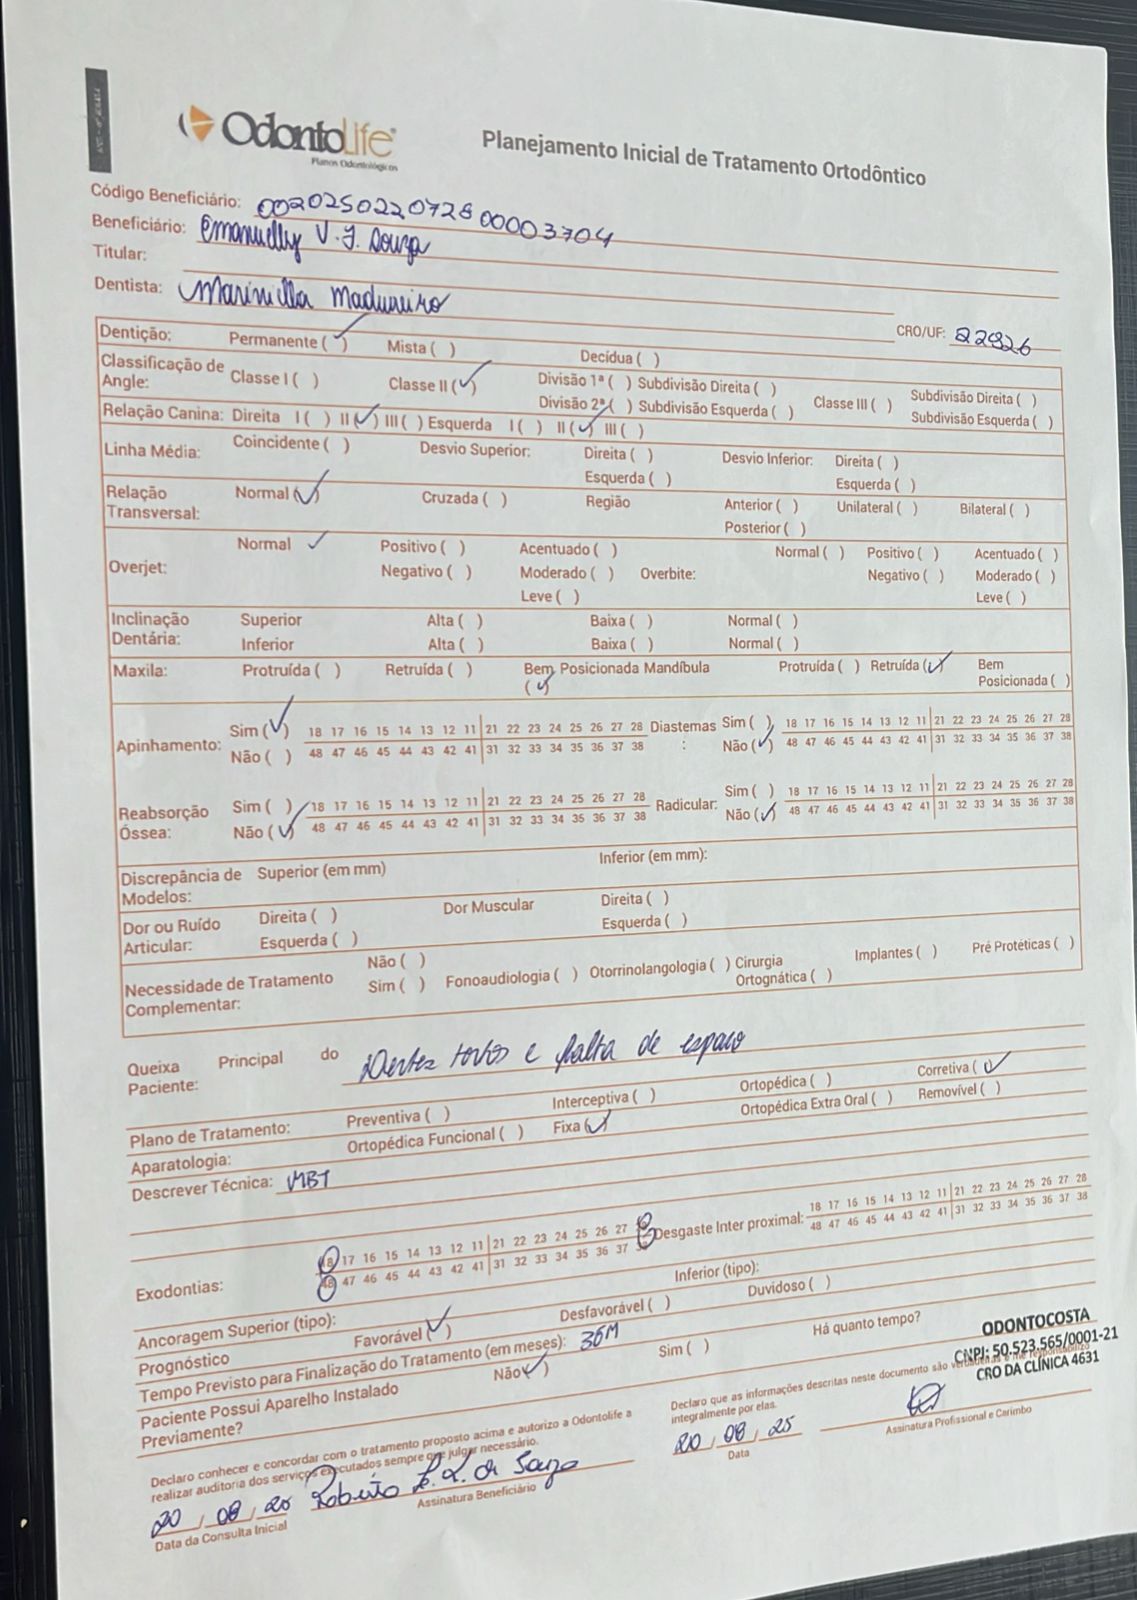 OdontoLife
Planos Odontológicos
Planejamento Inicial de Tratamento Ortodôntico
Código Beneficiário: 0020250220728 00003704
Beneficiário: Emanuelly V. J. Souza
Titular:
Dentista: Marinilla Madureiro
CRO/UF: 22926
Dentição: Permanente (✓) Mista ( ) Decídua ( )
Classificação de Angle: Classe I ( ) Classe II (✓) Divisão 1ª ( ) Subdivisão Direita ( ) Classe III ( ) Subdivisão Direita ( )
Divisão 2ª ( ) Subdivisão Esquerda ( ) Subdivisão Esquerda ( )
Relação Canina: Direita I ( ) II (✓) III ( ) Esquerda I ( ) II (✓) III ( )
Linha Média: Coincidente ( ) Desvio Superior: Direita ( ) Desvio Inferior: Direita ( )
Esquerda ( ) Esquerda ( )
Relação Transversal: Normal (✓) Cruzada ( ) Região Anterior ( ) Unilateral ( ) Bilateral ( )
Posterior ( )
Overjet: Normal ✓ Positivo ( ) Acentuado ( ) Normal ( ) Positivo ( ) Acentuado ( )
Negativo ( ) Moderado ( ) Overbite: Negativo ( ) Moderado ( )
Leve ( ) Leve ( )
Inclinação Dentária: Superior Alta ( ) Baixa ( ) Normal ( )
Inferior Alta ( ) Baixa ( ) Normal ( )
Maxila: Protruída ( ) Retruída ( ) Bem Posicionada (✓) Mandíbula Protruída ( ) Retruída (✓) Bem Posicionada ( )
Apinhamento: Sim (✓) 18 17 16 15 14 13 12 11 21 22 23 24 25 26 27 28 Diastemas : Sim ( ) 18 17 16 15 14 13 12 11 21 22 23 24 25 26 27 28
Não ( ) 48 47 46 45 44 43 42 41 31 32 33 34 35 36 37 38 Não (✓) 48 47 46 45 44 43 42 41 31 32 33 34 35 36 37 38
Reabsorção Óssea: Sim ( ) 18 17 16 15 14 13 12 11 21 22 23 24 25 26 27 28 Radicular: Sim ( ) 18 17 16 15 14 13 12 11 21 22 23 24 25 26 27 28
Não (✓) 48 47 46 45 44 43 42 41 31 32 33 34 35 36 37 38 Não (✓) 48 47 46 45 44 43 42 41 31 32 33 34 35 36 37 38
Discrepância de Modelos: Superior (em mm) Inferior (em mm):
Dor ou Ruído Articular: Direita ( ) Dor Muscular Direita ( )
Esquerda ( ) Esquerda ( )
Necessidade de Tratamento Complementar: Não ( )
Sim ( ) Fonoaudiologia ( ) Otorrinolangologia ( ) Cirurgia Ortognática ( ) Implantes ( ) Pré Protéticas ( )
Queixa Principal do Paciente: Dentes tortos e falta de espaço
Plano de Tratamento: Preventiva ( ) Interceptiva ( ) Ortopédica ( ) Corretiva (✓)
Aparatologia: Ortopédica Funcional ( ) Fixa (✓) Ortopédica Extra Oral ( ) Removível ( )
Descrever Técnica: MBT
Exodontias: 18 17 16 15 14 13 12 11 21 22 23 24 25 26 27 28 Desgaste Inter proximal: 18 17 16 15 14 13 12 11 21 22 23 24 25 26 27 28
48 47 46 45 44 43 42 41 31 32 33 34 35 36 37 38 48 47 46 45 44 43 42 41 31 32 33 34 35 36 37 38
Ancoragem Superior (tipo): Inferior (tipo):
Prognóstico Favorável (✓) Desfavorável ( ) Duvidoso ( )
Tempo Previsto para Finalização do Tratamento (em meses): 36M
Paciente Possui Aparelho Instalado Previamente? Não (✓) Sim ( ) Há quanto tempo?
ODONTOCOSTA
CNPJ: 50.523.565/0001-21
CRO DA CLÍNICA 4631
Declaro conhecer e concordar com o tratamento proposto acima e autorizo a Odontolife a
realizar auditoria dos serviços executados sempre que julgar necessário.
Declaro que as informações descritas neste documento são verdadeiras e me responsabilizo
integralmente por elas.
20 / 08 / 25
Data
Assinatura Profissional e Carimbo
20 / 08 / 25 Roberto de Souza
Data da Consulta Inicial
Assinatura Beneficiário